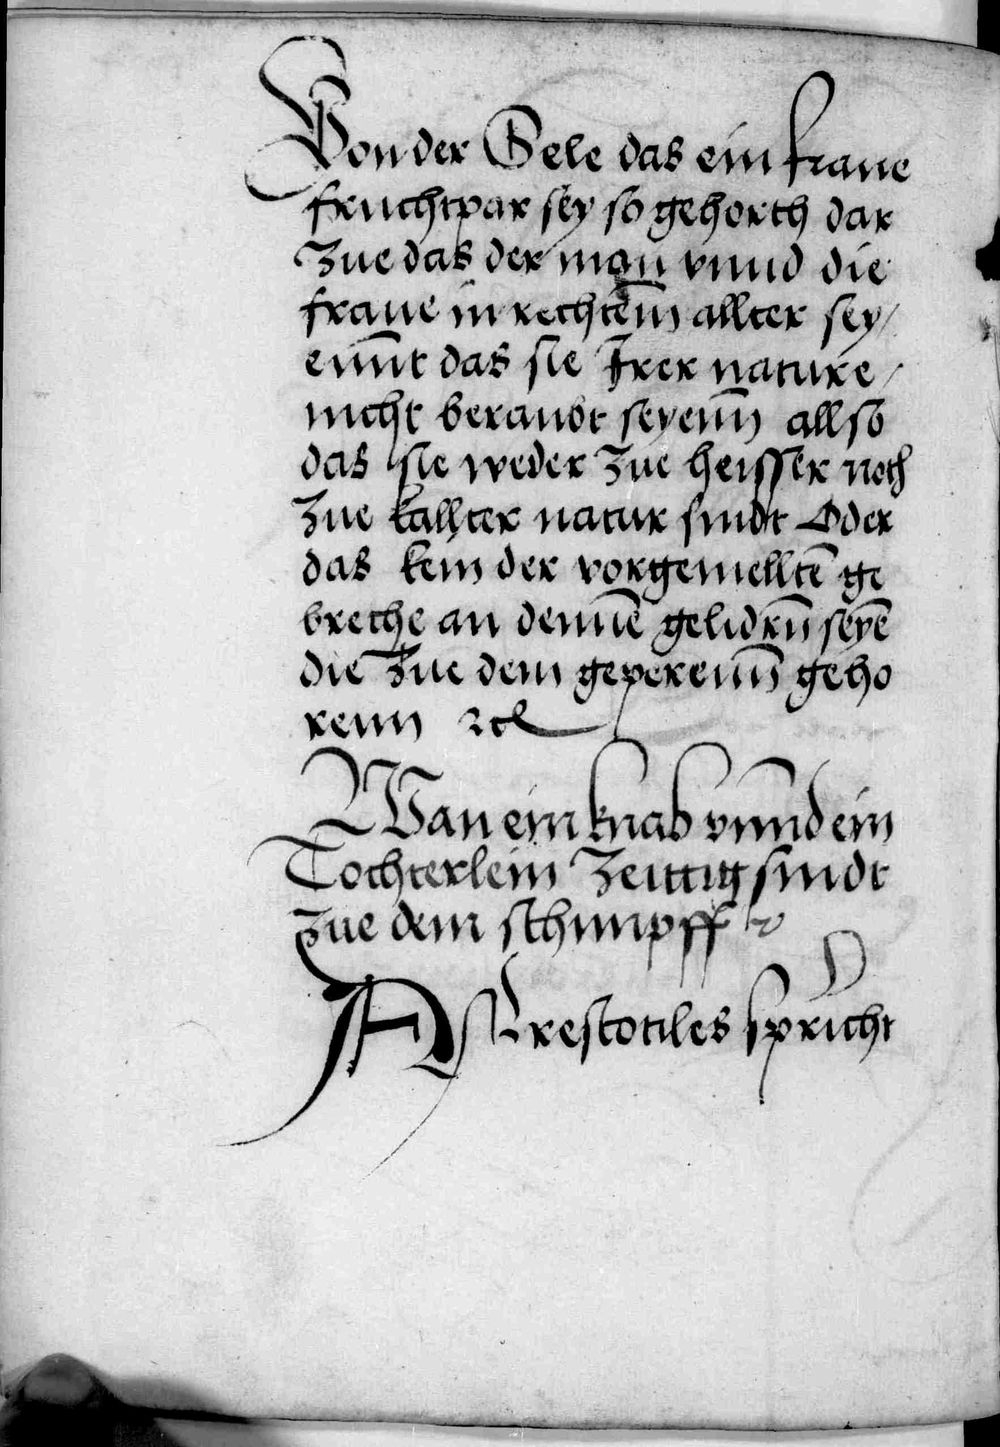 Von der Sele das ein fraue
fruchtpar sey so gehorth dar
Zue das der man vnnd die
fraue in rechtem̅ allter sey /
ein̅nt das sie Irer nature /
nicht beraubt seyenn allso
das sie weder Zue heisser noch
Zue kallter natur sindt Oder
das kein der vorgemellte̅ ge
breche an denne̅ gelidrn̅ seye̅
die Zue dem geperenn̅ geho
renn ꝛcꝛ
WAn ein knab vnnd ein
Tochterlein Zeittig sindt
Zue dem schimpff ꝛc
ARestotiles spricht